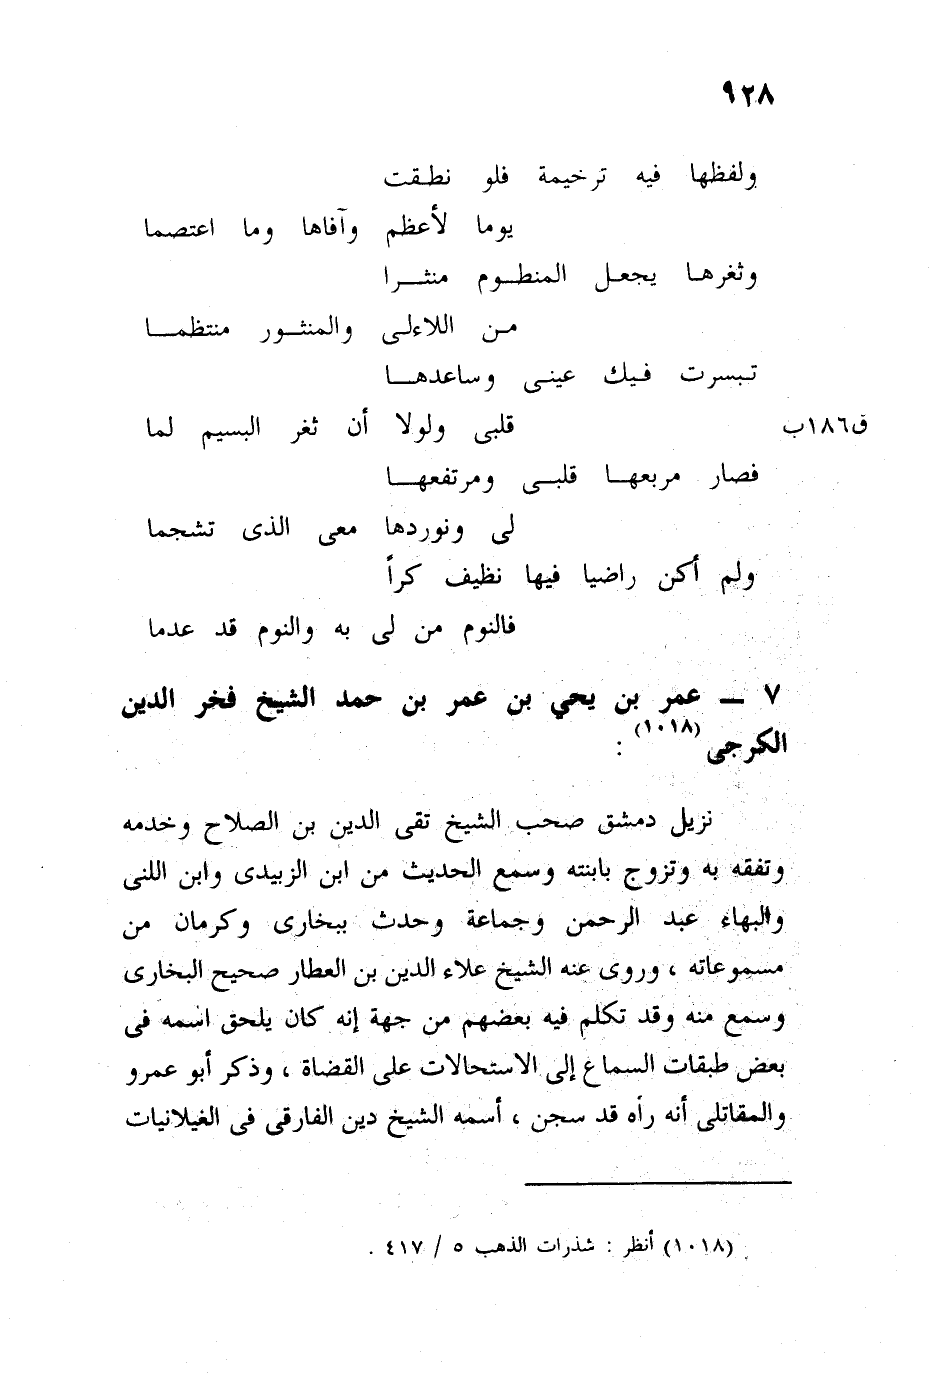 ٩٢٨
ولفظها فيه ترخيمة فلو نطقت
يوما لأعظم وآفاها وما اعتصما
وثغرها يجعل المنطوم منثرا
من اللاءلى والمنثور منتظما
تبسرت فيك عينى وساعدها
قلبى ولولا أن ثغر البسيم لما
ق١٨٦ب
فصار مربعها قلبى ومرتفعها
لى ونوردها معى الذى تشجما
ولم أكن راضيا فيها نظيف كرأ
فالنوم من لى به والنوم قد عدما
٧ — عمر بن يحي بن عمر بن حمد الشيخ فخر الدين
الكرجى (١٠١٨) :
نزيل دمشق صحب الشيخ تقى الدين بن الصلاح وخدمه
وتفقه به وتزوج بابنته وسمع الحديث من ابن الزبيدى وابن اللنى
والبهاء عبد الرحمن وجماعة وحدث ببخارى وكرمان من
مسموعاته ، وروى عنه الشيخ علاء الدين بن العطار صحيح البخارى
وسمع منه وقد تكلم فيه بعضهم من جهة إنه كان يلحق اسمه فى
بعض طبقات السماع إلى الاستحالات على القضاة ، وذكر أبو عمرو
والمقاتلى أنه رأه قد سجن ، أسمه الشيخ دين الفارقى فى الغيلانيات
(١٠١٨) أنظر : شذرات الذهب ٥ / ٤١٧ .